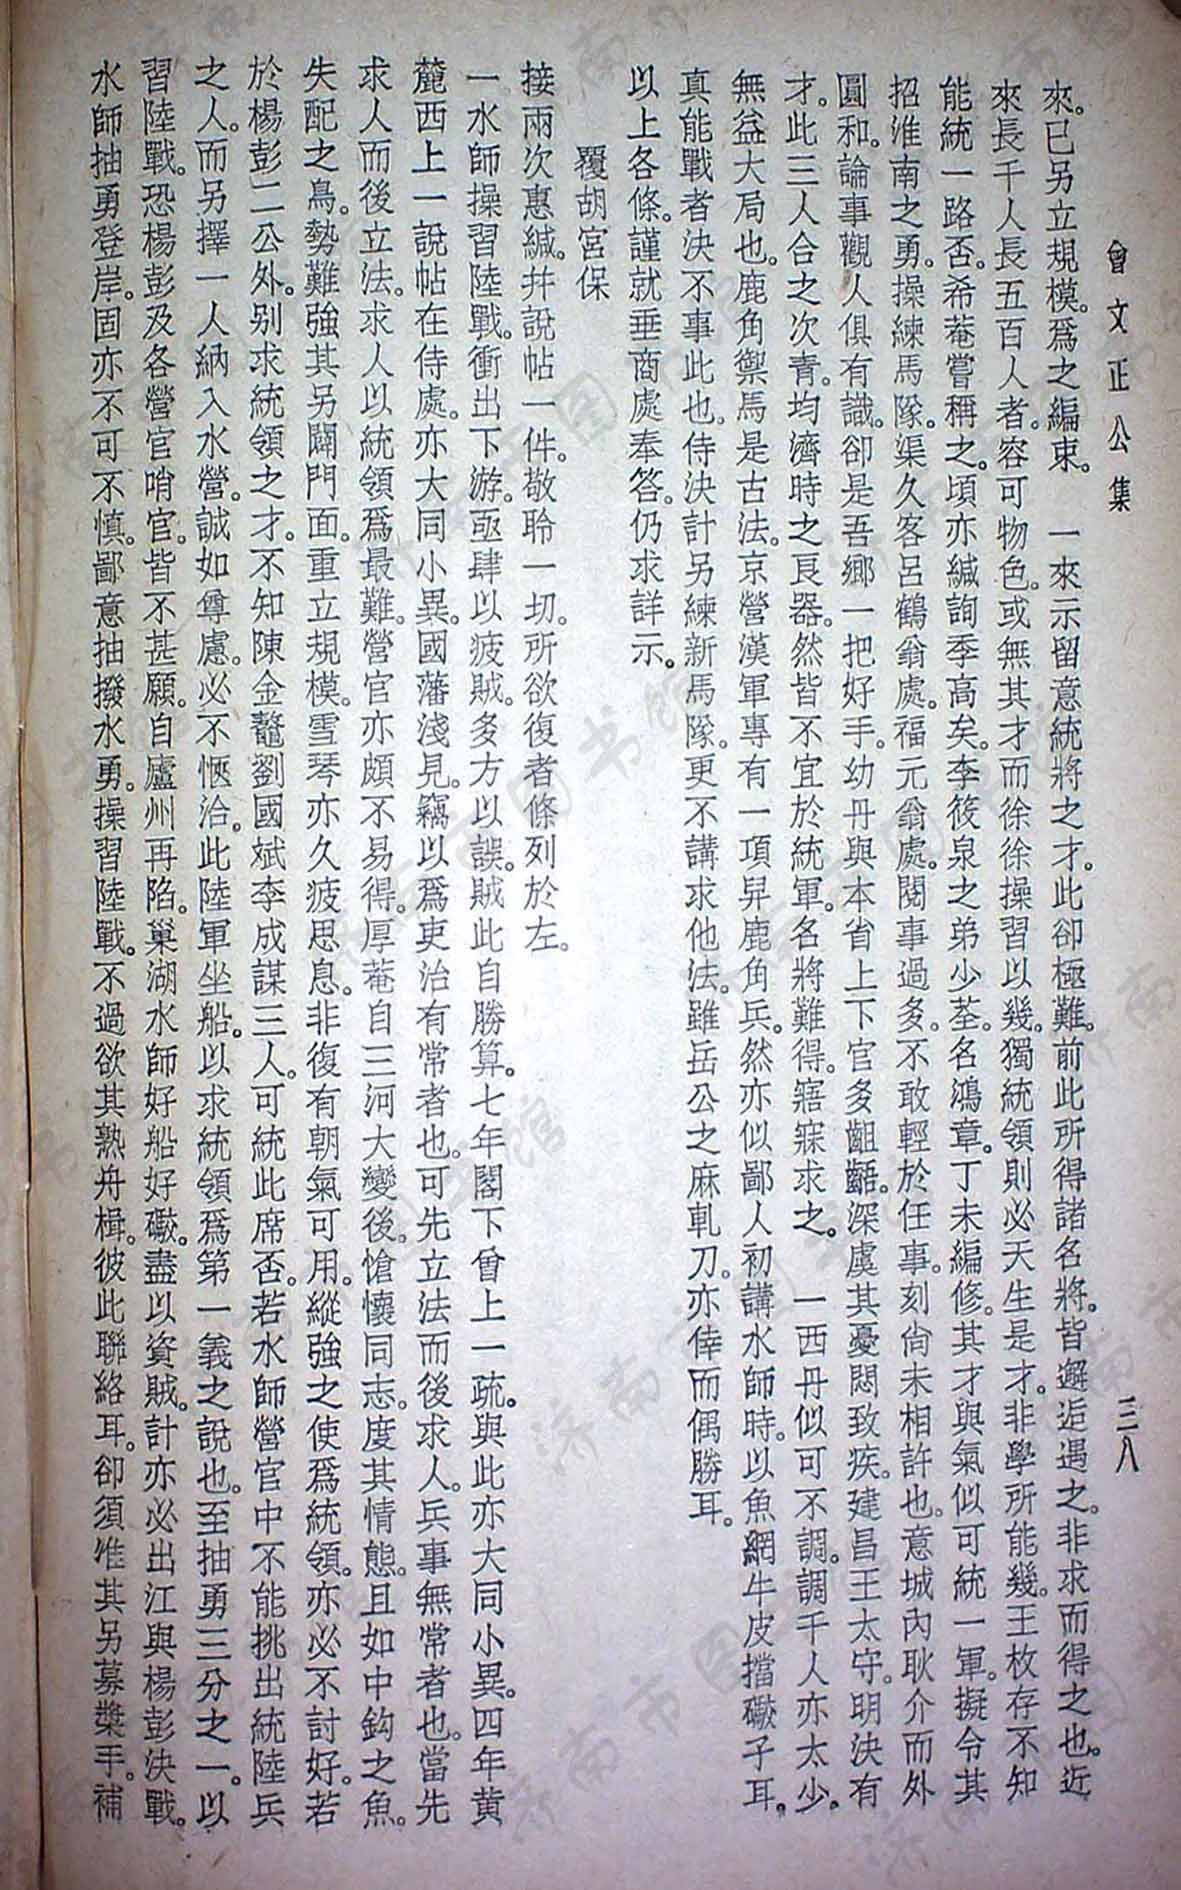 曾文正公集
三八
來。已另立規模。爲之編束。　一來示留意統將之才。此卻極難。前此所得諸名將。皆邂逅遇之。非求而得之也。近
來長千人長五百人者。容可物色。或無其才而徐徐操習以幾。獨統領則必天生是才。非學所能幾。王枚存不知
能統一路否。希菴嘗稱之。頃亦緘詢季高矣。李筱泉之弟少荃。名鴻章。丁未編修。其才與氣似可統一軍。擬令其
招淮南之勇。操練馬隊。渠久客呂鶴翁處。福元翁處。閱事過多。不敢輕於任事。刻尙未相許也。意城內耿介而外
圓和。論事觀人俱有識。卻是吾鄉一把好手。幼丹與本省上下官多齟齬。深虞其憂悶致疾。建昌王太守。明決有
才。此三人合之次青。均濟時之良器。然皆不宜於統軍。名將難得。寤寐求之。　一西丹似可不調。調千人亦太少。
無益大局也。鹿角禦馬是古法。京營漢軍專有一項舁鹿角兵。然亦似鄙人初講水師時。以魚網牛皮擋礮子耳。
真能戰者決不事此也。侍決計另練新馬隊。更不講求他法。雖岳公之麻軋刀。亦倖而偶勝耳。
以上各條。謹就垂商處奉答。仍求詳示。
覆胡宮保
接兩次惠緘。幷說帖一件。敬聆一切。所欲復者條列於左。
一水師操習陸戰。衝出下游。亟肆以疲賊。多方以誤。賊此自勝算。七年閣下曾上一疏。與此亦大同小異。四年黃
麓西上一說帖在侍處。亦大同小異。國藩淺見。竊以爲吏治有常者也。可先立法而後求人。兵事無常者也。當先
求人而後立法。求人以統領爲最難。營官亦頗不易得。厚菴自三河大變後。愴懷同志。度其情態。且如中鈎之魚。
失配之鳥。勢難強其另闢門面。重立規模。雪琴亦久疲思息。非復有朝氣可用。縱強之使爲統領。亦必不討好。若
於楊彭二公外。別求統領之才。不知陳金鼇劉國斌李成謀三人。可統此席否。若水師營官中不能挑出統陸兵
之人。而另擇一人納入水營。誠如尊慮。必不愜洽。此陸軍坐船。以求統領爲第一義之說也。至抽勇三分之一。以
習陸戰。恐楊彭及各營官哨官。皆不甚願。自廬州再陷。巢湖水師好船好礮。盡以資賊。計亦必出江與楊彭決戰。
水師抽勇登岸。固亦不可不慎。鄙意抽撥水勇。操習陸戰。不過欲其熟舟楫。彼此聯絡耳。卻須准其另募槳手。補